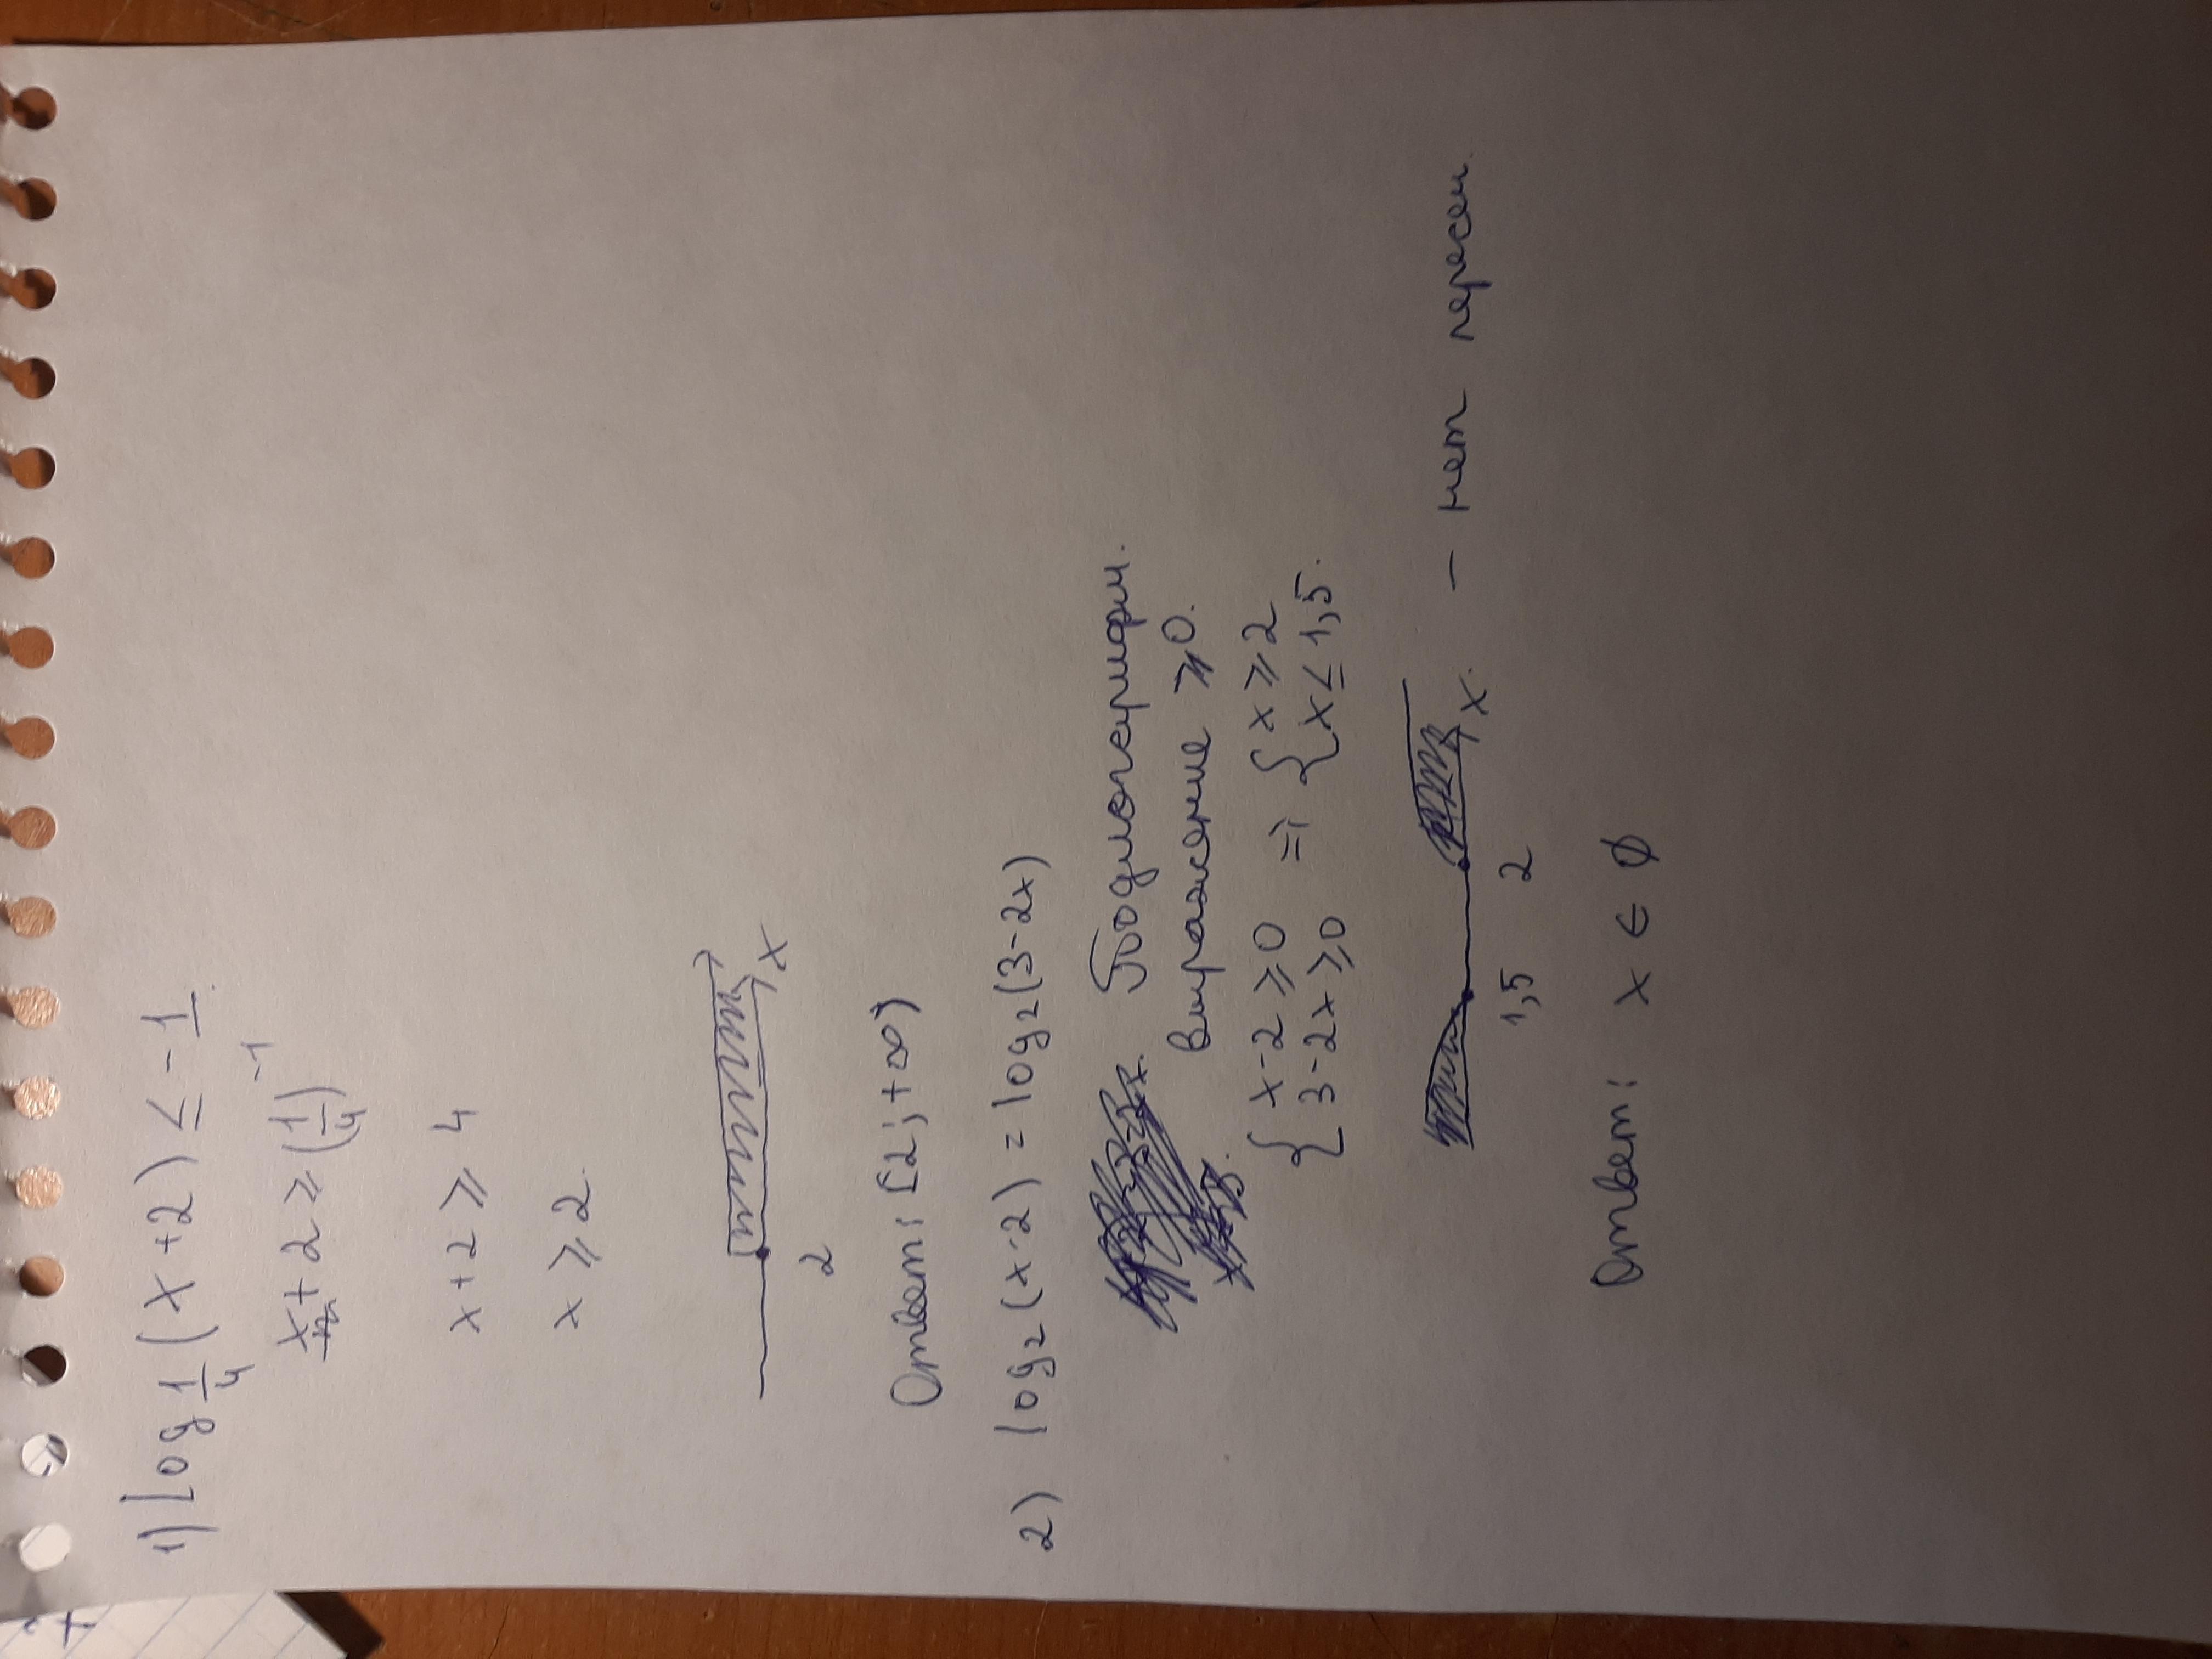 1) log 1/4 (x+2) ≤ -1.
x+2 ≥ (1/4)^-1
x+2 ≥ 4
x ≥ 2.
2 x
Ответ: [2; +∞)
2) log₂(x-2) = log₂(3-2x)
Подлогарифм.
выражение ≥ 0.
{ x-2 ≥ 0 => { x ≥ 2
{ 3-2x ≥ 0 { x ≤ 1,5.
x. - нет пересеч.
1,5 2
Ответ: x ∈ ∅